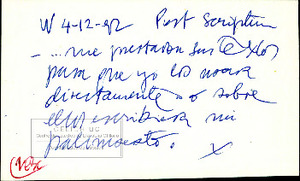 W 4-12-92 Post Scriptum
- ... me prestaron sus textos
para que yo los
directamente o sobre
ellos escribiera mi
palimpsesto.
X